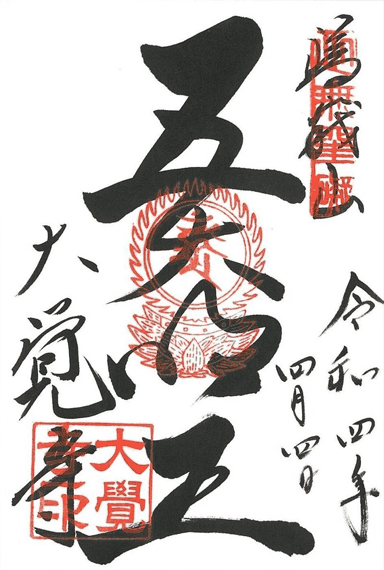 嵯峨山
令和四年
四月四日
五大明王
大覚寺
大覺
寺印